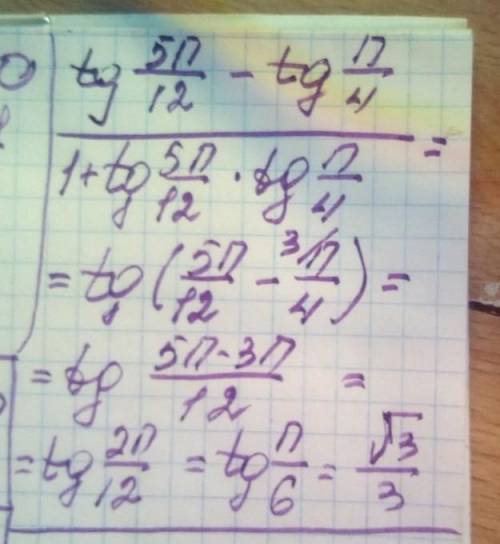 tg 5π/12 - tg π/4
1 + tg 5π/12 · tg π/4 =
= tg (5π/12 - ³⁄π/4) =
= tg 5π-3π/12 =
= tg 2π/12 = tg π/6 = √3/3